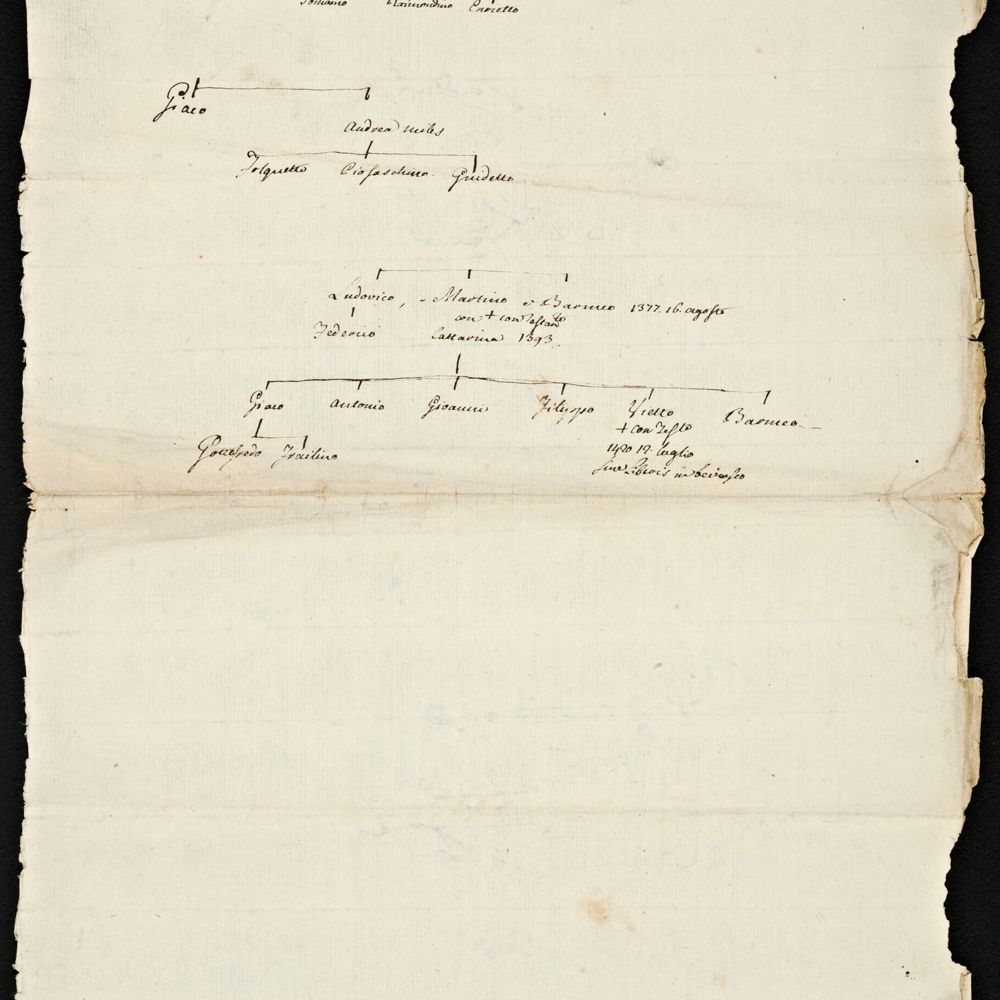 Raimondino Enrietto
Giaco
Andrea miles
Folquetto Ciofaschino Guidetto
Ludovico, - Martino e Barmeo 1377. 16. agosto
con + con Testam.to
Federico Cattarina 1393.
Giaco Antonio Gioanni Filippo Vietto Barmeo
+ con Testo
Gottefredo 1420 12. luglio
sine Liberis in